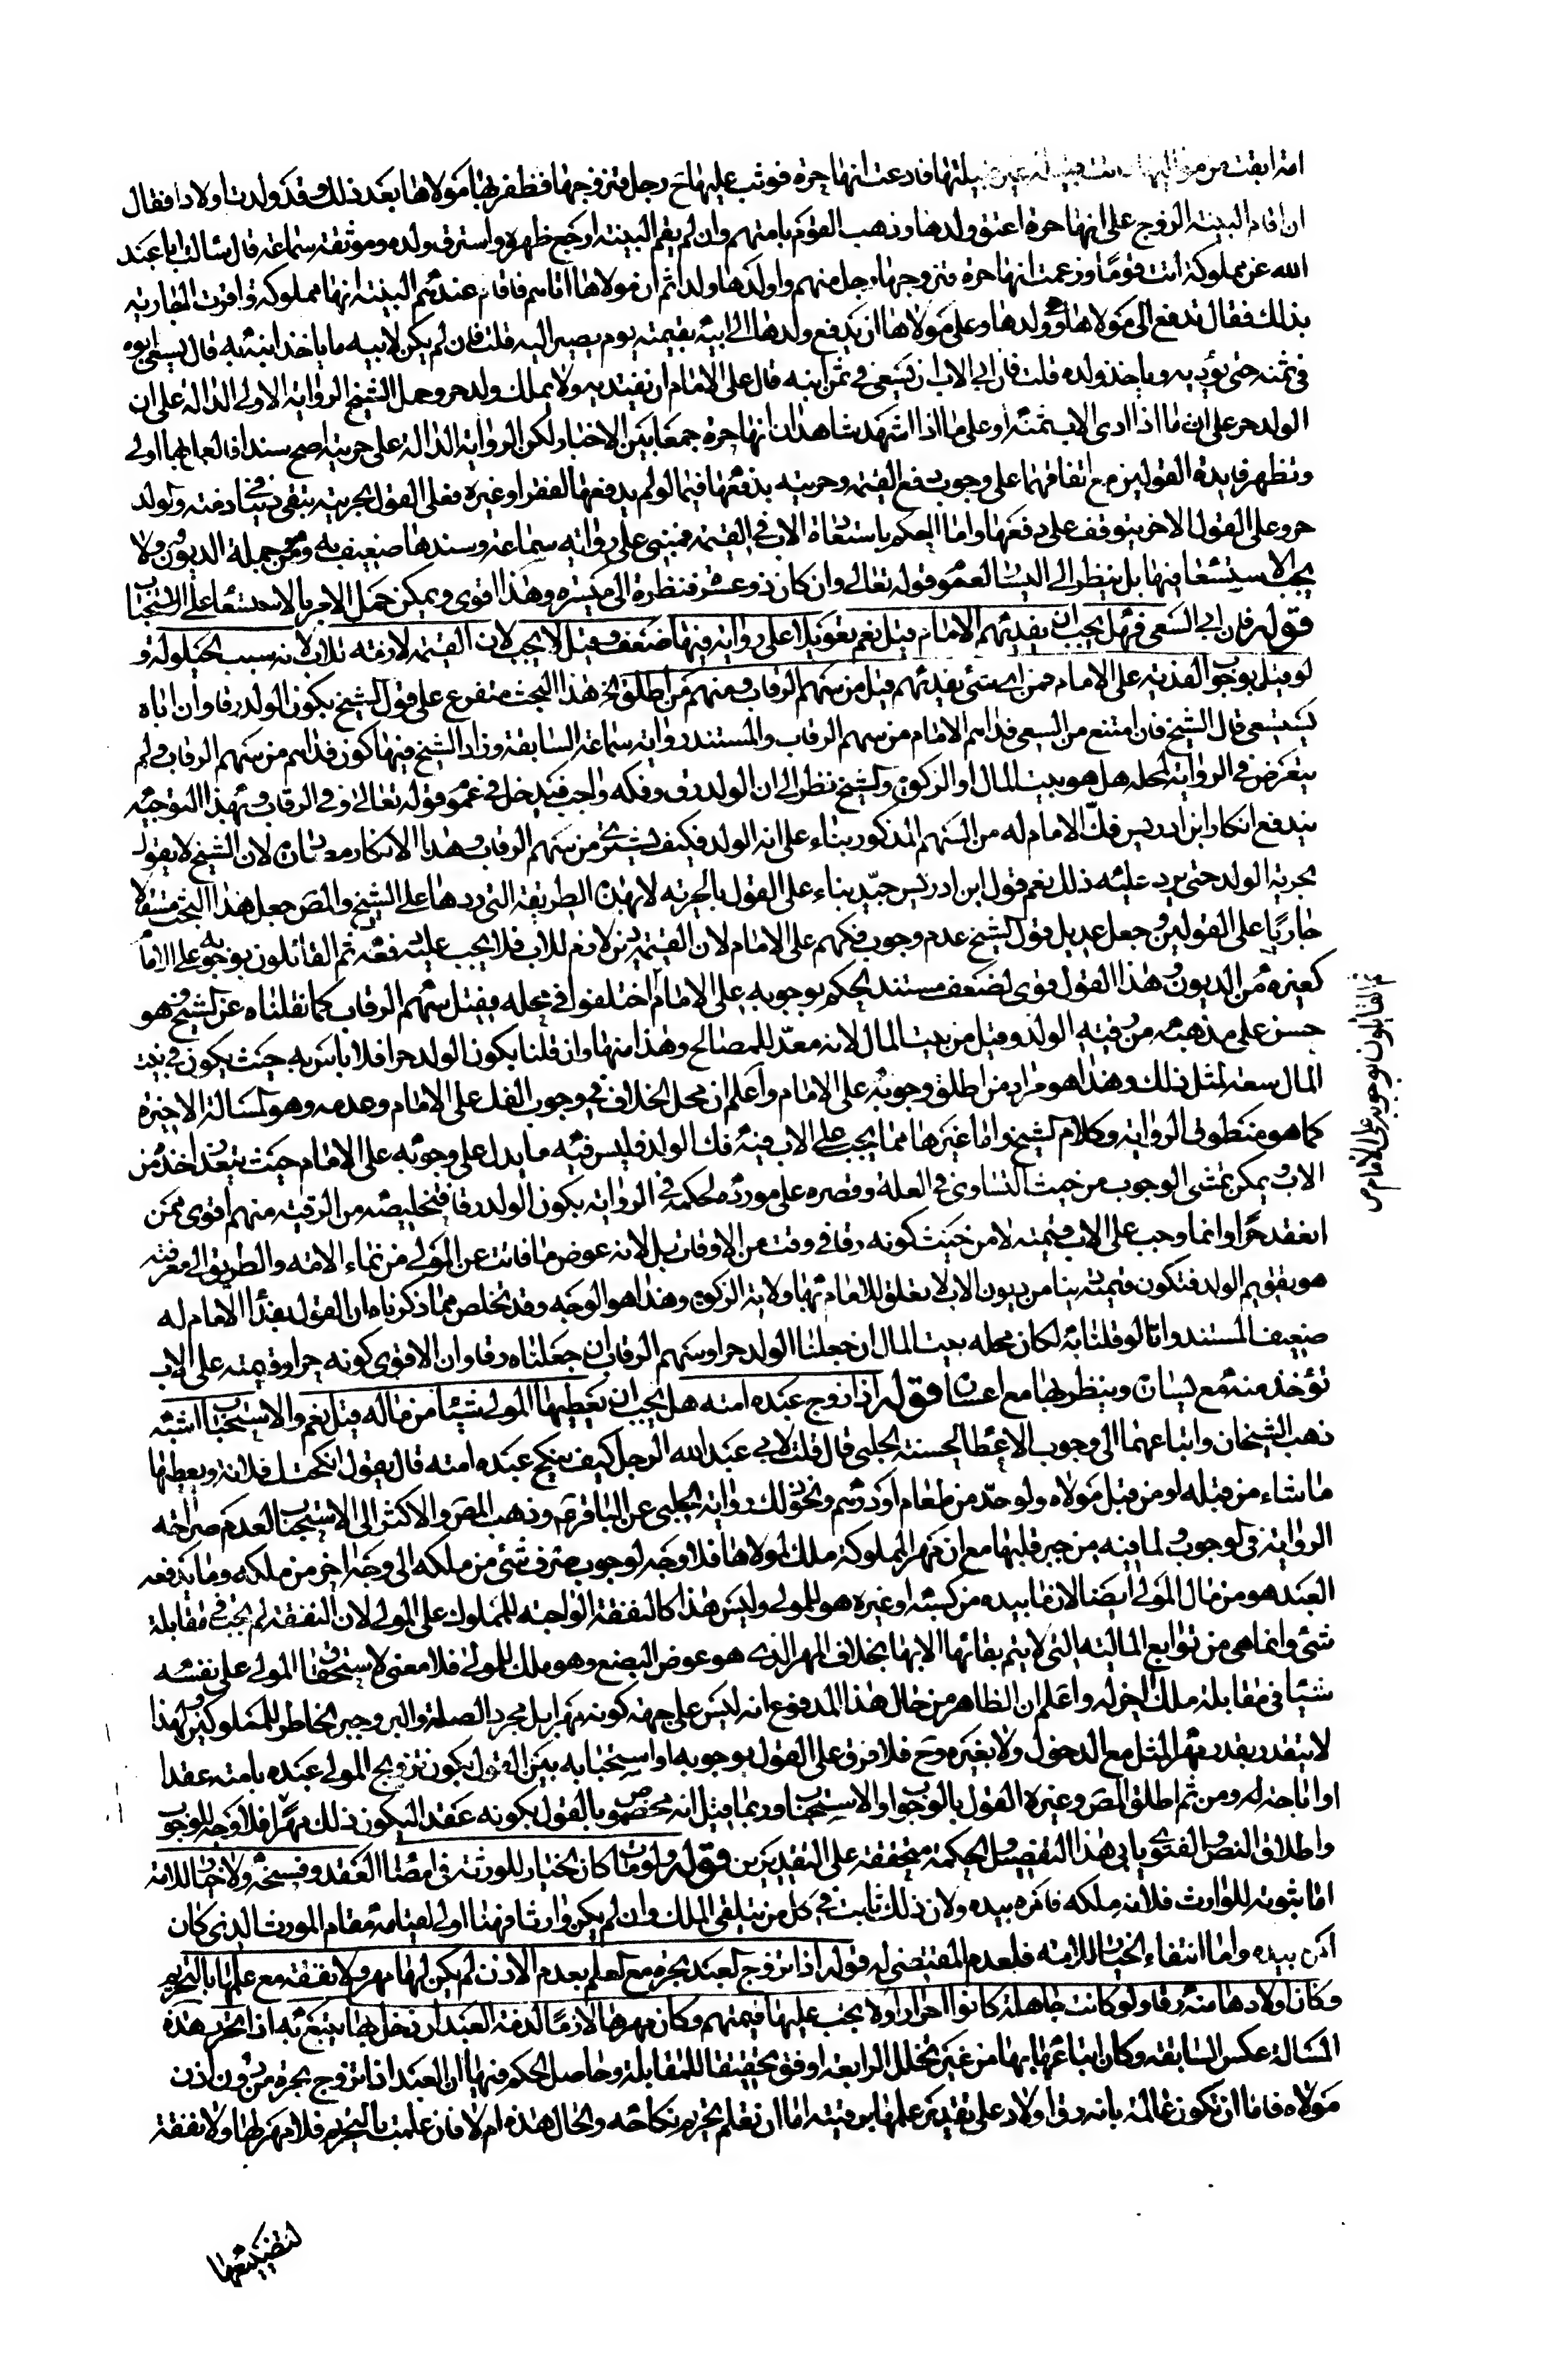 امة ابقت من مواليها فاتت قبيلة غير قبيلتها فادعت انها حرة فوثب عليها ح رجل فتزوجها فظفر بها مولاها بعد ذلك وقد ولدت اولادا فقال
ان اقام البينة الزوج على انها حرة اعتق ولدها وذهب القوم بامتهم وان لم يقم البينة اوجع ظهره واسترق ولده وموثقة سماعة قال سالت ابا عبد
الله عن مملوكة اتت قوما وزعمت انها حرة فتزوجها رجل منهم واولدها ولدا ثم ان مولاها اتاهم فاقام عندهم البينة انها مملوكة واقرت الجارية
بذلك فقال تدفع الى مولاها وولدها وعلى مولاها ان يدفع ولدها الى ابيه بقيمته يوم يصير اليه قلت فان لم يكن لابيه ما ياخذ ابنه به قال يسعى ابوه
في ثمنه حتى يؤديه وياخذ ولده قلت فان ابى الاب ان يسعى في ثمن ابنه قال على الامام ان يفتديه ولا يملك ولد حر وحمل الشيخ الرواية الاولى الدالة على ان
الولد حر على ان ما اذا ادى الاب ثمنه او على ما اذا شهد شاهدان انها حرة جمعا بين الاخبار ولكن الرواية الدالة على حريته اصح سندا فالعمل بها اولى
وتظهر فايدة القولين مع اتفاقهما على وجوب دفع القيمة وحريته بدفعها فيما لو لم يدفعها لفقر او غيره فعلى القول بحريته تبقى دينا في ذمته والولد
حر وعلى القول الاخر يتوقف على دفعها واما الحكم باستسعاء الاب في القيمة فمبني على رواية سماعة وسندها ضعيف به وهي من جملة الديون ولا
يجب الاستسعاء فيها بل ينظر الى اليسار لعموم قوله تعالى وان كان ذو عسرة فنظرة الى ميسرة وهذا اقوى ويمكن حمل الامر بالاستسعاء على الاستحباب
قوله فان ابى السعي فهل يجب ان يفديهم الامام قيل نعم تعويلا على رواية فيها ضعف وقيل لا يجب لان القيمة لازمة للاب لانه سبب الحيلولة و
لو قيل بوجوب الفدية على الامام فمن اي شئ يفديهم قيل من سهم الرقاب ومنهم من اطلق هذا البحث متفرع على قول الشيخ بكون الولد رقا وان اباه
يستسعى قال الشيخ فان امتنع من السعي فداهم الامام من سهم الرقاب والمستند رواية سماعة السابقة وزاد الشيخ فيها كون فداهم من سهم الرقاب ولم
يتعرض في الرواية لمحله هل هو بيت المال او الزكوة والشيخ نظر الى ان الولد رق وفكه واجب فيدخل في عموم قوله تعالى وفي الرقاب وبهذا التوجيه
يندفع انكار ابن ادريس فك الامام له من السهم المذكور بناء على انه الولد فكيف يشترى من سهم الرقاب وهذا الانكار لان الشيخ لا يقول
بحرية الولد حتى يرد عليه ذلك نعم قول ابن ادريس جيد بناء على القول بالحرية لا بهذه الطريقة التي ردها على الشيخ والمص جعل هذا البحث مستقلا
جاريا على القولين وجعل عديل قول الشيخ عدم وجوب فكهم على الامام لان القيمة دين لازم للاب فلا يجب عليه دفعه ثم القائلون بوجوبه على الامام
كغيره من الديون وهذا القول قوى لضعف مستند الحكم بوجوبه على الامام اختلفوا في محله فقيل سهم الرقاب كما نقلناه عن الشيخ وهو
حسن على مذهبه من رقية الولد وقيل من بيت المال لانه معد للمصالح وهذا منها وان قلنا بكون الولد حرا فلا باس به حيث يكون في بيت
المال سعة لمثل ذلك وهذا هو مراد من اطلق وجوبه على الامام واعلم ان محل الخلاف في وجوب الفك على الامام وعدمه وهو المسالة الاخيرة
كما هو منطوق الرواية وكلام الشيخ واما غيرها مما يجب على الاب فيه فك الولد فليس فيه ما يدل على وجوبه على الامام حيث يتعذر اخذه من
الاب ويمكن تمشى الوجوب من حيث التساوى في العلة وقصره على مورده لحكمه في الرواية بكون الولد رقا فتخليصه من الرقية منهم اقوى ممن
انعقد حرا وانما وجب على الاب قيمته لا من حيث كونه رقا في وقت من الاوقات بل لانه عوض ما فات عن المولى من نماء الامة والطريق الى معرفته
هو تقويم الولد فتكون قيمته دينا من ديون الاب لا تعلق للامام بها ولا بد الزكوة وهذا هو الوجه وقد تخلص مما ذكرناه ان القول بفداء الامام له
ضعيف المستند وانا لو قلنا به لكان محله بيت المال ان جعلنا الولد حرا وسهم الرقاب ان جعلناه رقا وان الاقوى كونه حرا وقيمته على الاب
تؤخذ منه مع يساره وينظر بها مع اعساره قوله اذا زوج عبده امته هل يجب ان يعطيها المولى شيئا من ماله قيل نعم والاستحباب اشبه
ذهب الشيخان واتباعهما الى وجوب الاعطاء لحسنة الحلبي قال قلت لابي عبد الله الرجل كيف ينكح عبده امته قال يقول انكحتك فلانة ويعطيها
ما شاء من قبله او من قبل مولاه ولو حد من طعام او درهم ونحو ذلك رواية الحلبي عن الباقر ع وذهب المص والاكثر الى الاستحباب لعدم صراحة
الرواية في الوجوب ولما فيه من جبر قلبها مع ان مهر المملوكة ملك لمولاها فلا وجه لوجوب صرف شئ من ملكه الى وجه اخر من ملكه وما يدفعه
العبد هو من مال المولى ايضا لان ما بيده من كسبه او غيره هو للمولى وليس هذا كالنفقة الواجبة للمملوك على المولى لان النفقة لم تجب في مقابلة
شئ وانما هي من توابع المالية التي لا يتم بقائها الا بها بخلاف المهر الذى هو عوض البضع وهو ملك للمولى فلا معنى لاستحقاق المولى على نفسه
شيئا في مقابلة ملك اخر له واعلم ان الظاهر من حال هذا المدفوع انه ليس على جهة كونه مهرا بل مجرد الصلة والبر وجبر الخاطر للمملوكين ولهذا
لا يتقدر بقدر مهر المثل مع الدخول ولا بغيره وح فلا فرق على القول بوجوبه او استحبابه بين القول بكون تزويج المولى عبده بامته عقدا
او اباحة له ومن ثم اطلق المص وغيره القول بالوجوب او الاستحباب وربما قيل انه مخصوص بالقول بكونه عقدا ليكون ذلك مهرا فلا وجه للوجوب
واطلاق النص والفتوى يابى هذا التفصيل والحكمة متحققة على التقديرين قوله ولو ماتا كان الخيار للورثة في امضاء العقد وفسخه ولا خيار للامة
اما ثبوته للوارث فلانه ملكه فامره بيده ولان ذلك ثابت في كل من يتلقى الملك وان لم يكن وارثا فهنا اولى لقيامه مقام المورث الذي كان
امره بيده واما انتفاء الخيار للامة فلعدم المقتضى له قوله اذا تزوج العبد بحرة مع العلم بعدم الاذن لم يكن لها مهر ولا نفقة مع علمها بالتحريم
وكان اولادها منه رقا ولو كانت جاهلة كانوا احرارا ولا يجب عليها قيمتهم وكان مهرها لازما لذمة العبد ان دخل بها يتبع به اذا تحرر هذه
المسالة عكس السابقة وكان اتباعها بها من غير تخلل الرابعة اوفق تحقيقا للمقابلة وحاصل الحكم فيها ان العبد اذا تزوج بحرة من دون اذن
مولاه فاما ان تكون عالمة بانه رق اولا وعلى تقدير علمها برقيته اما ان تعلم تحريم نكاحه والحال هذه ام لا فان علمت بالتحريم فلا مهر لها ولا نفقة
ثم القائلون بوجوبه على الامام ص
لتضييعها